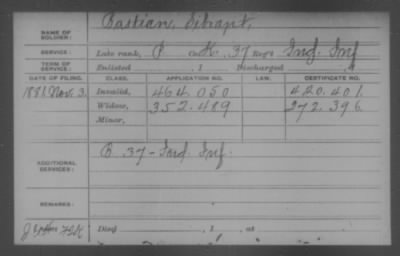 NAME OF SOLDIER: Bastian,
SERVICE: Late rank, P Co. K. 37 Reg't Ind. Inf
TERM OF SERVICE: Enlisted , 1 Discharged , 1
DATE OF FILING. CLASS. APPLICATION NO. LAW. CERTIFICATE NO.
1881, Nov. 3, Invalid, 464.050 420.401.
Widow, 352.489 272.396.
Minor,
ADDITIONAL SERVICES: B 37 - Ind. Inf.
REMARKS:
Died , 1 , at